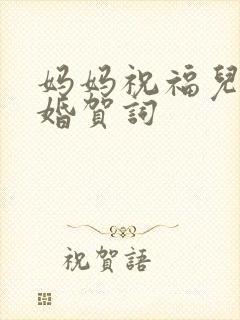 妈妈祝福兒
婚賀詞
祝賀語